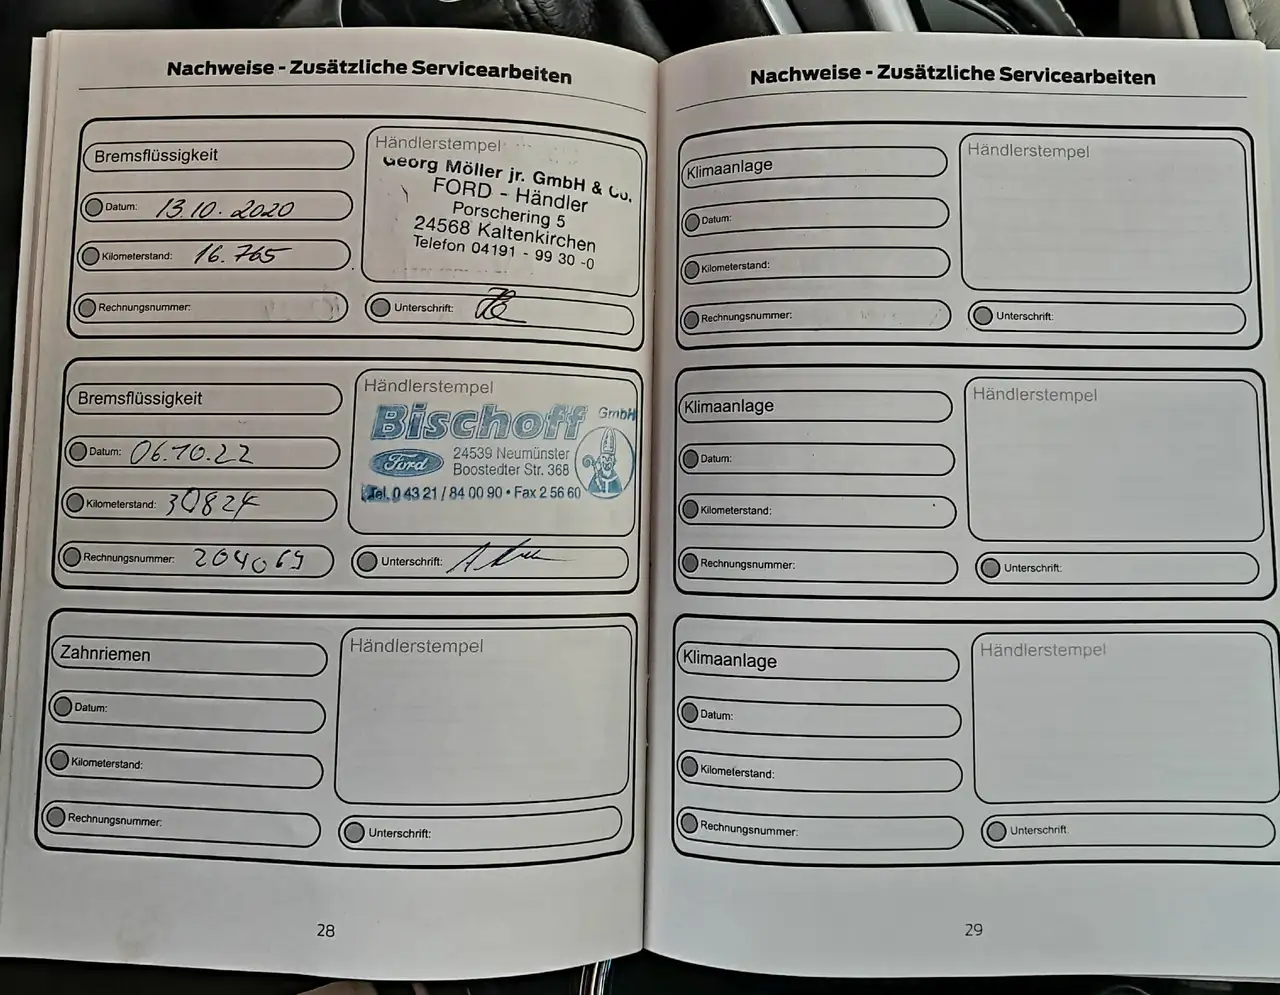 Nachweise - Zusätzliche Servicearbeiten
Bremsflüssigkeit
Datum: 13.10.2020
Kilometerstand: 16.765
Rechnungsnummer:
Händlerstempel
Georg Möller jr. GmbH & Co.
FORD - Händler
Porschering 5
24568 Kaltenkirchen
Telefon 04191 - 99 30 -0
Unterschrift:
Bremsflüssigkeit
Datum: 06.10.22
Kilometerstand: 30824
Rechnungsnummer: 204069
Händlerstempel
Bischoff GmbH
Ford
24539 Neumünster
Boostedter Str. 368
Tel. 0 43 21 / 84 00 90 • Fax 2 56 60
Unterschrift:
Zahnriemen
Datum:
Kilometerstand:
Rechnungsnummer:
Händlerstempel
Unterschrift:
28
Nachweise - Zusätzliche Servicearbeiten
Klimaanlage
Datum:
Kilometerstand:
Rechnungsnummer:
Händlerstempel
Unterschrift:
Klimaanlage
Datum:
Kilometerstand:
Rechnungsnummer:
Händlerstempel
Unterschrift:
Klimaanlage
Datum:
Kilometerstand:
Rechnungsnummer:
Händlerstempel
Unterschrift:
29